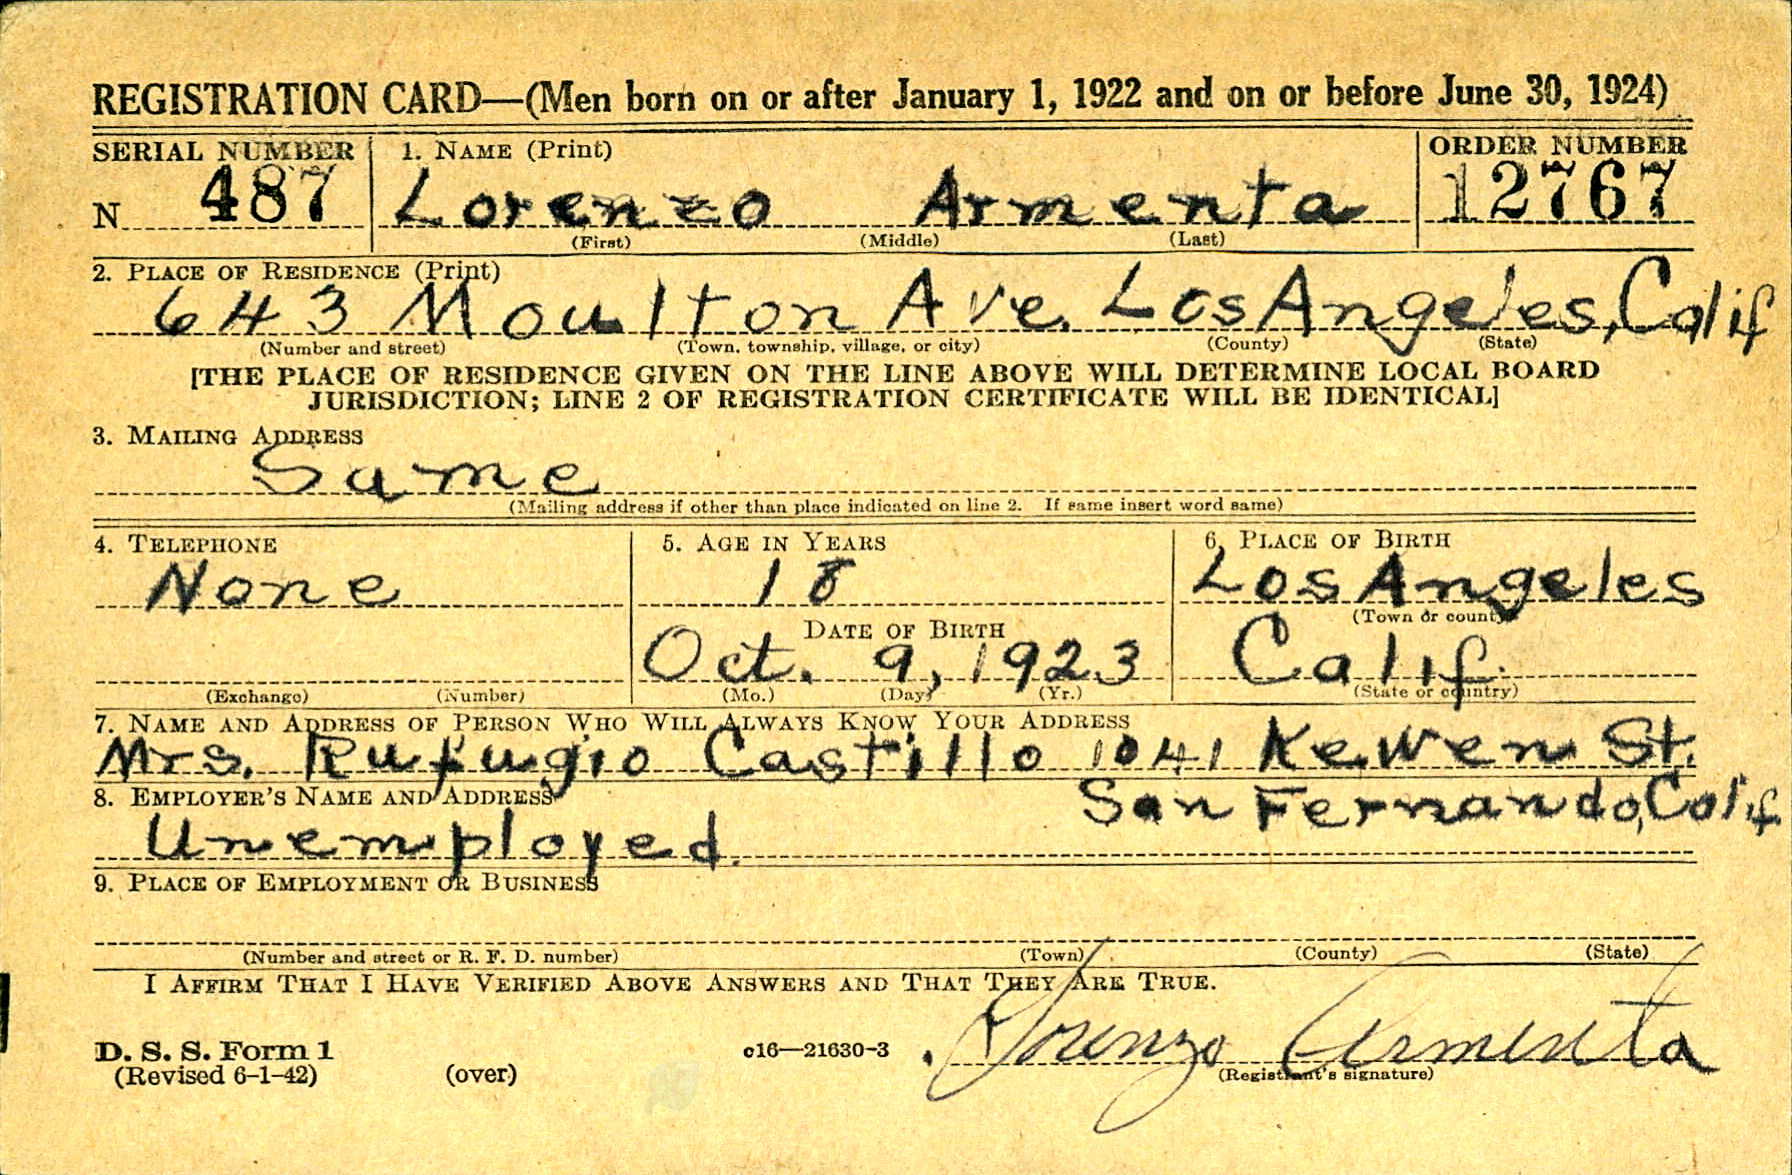 REGISTRATION CARD—(Men born on or after January 1, 1922 and on or before June 30, 1924)
SERIAL NUMBER 1. NAME (Print) ORDER NUMBER
N 487 Lorenzo Armenta 12767
(First) (Middle) (Last)
2. PLACE OF RESIDENCE (Print)
643 Moulton Ave. Los Angeles, Calif
(Number and street) (Town, township, village, or city) (County) (State)
[THE PLACE OF RESIDENCE GIVEN ON THE LINE ABOVE WILL DETERMINE LOCAL BOARD
JURISDICTION; LINE 2 OF REGISTRATION CERTIFICATE WILL BE IDENTICAL]
3. MAILING ADDRESS
Same
(Mailing address if other than place indicated on line 2. If same insert word same)
4. TELEPHONE 5. AGE IN YEARS 6. PLACE OF BIRTH
None 18 Los Angeles
(Town or county)
DATE OF BIRTH
Oct. 9, 1923 Calif.
(Exchange) (Number) (Mo.) (Day) (Yr.) (State or country)
7. NAME AND ADDRESS OF PERSON WHO WILL ALWAYS KNOW YOUR ADDRESS
Mrs. Rufugio Castillo 1041 Kewen St.
8. EMPLOYER'S NAME AND ADDRESS San Fernando, Calif.
Unemployed.
9. PLACE OF EMPLOYMENT OR BUSINESS
(Number and street or R. F. D. number) (Town) (County) (State)
I AFFIRM THAT I HAVE VERIFIED ABOVE ANSWERS AND THAT THEY ARE TRUE.
D. S. S. Form 1 c16—21630-3 Lorenzo Armenta
(Revised 6-1-42) (over) (Registrant's signature)